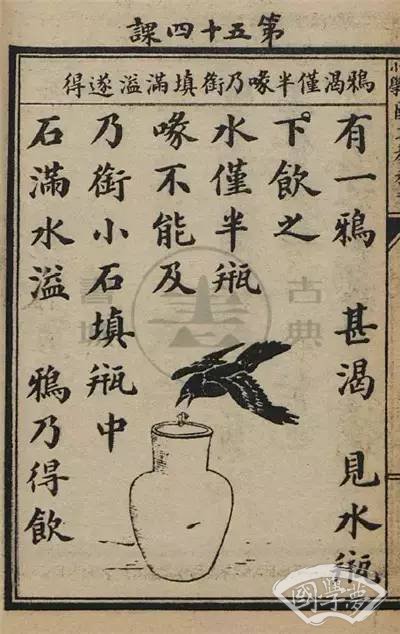 第五十四課
鴉渴僅半喙乃銜填滿溢遂得
有一鴉 甚渴 見水瓶
下飲之
水僅半瓶
喙不能及
乃銜小石填瓶中
石滿水溢 鴉乃得飲
古典
國學夢